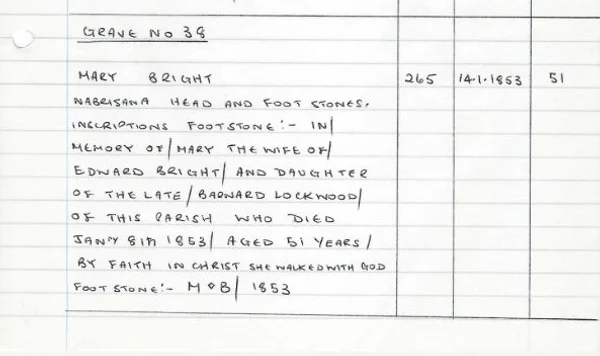 GRAVE NO 38
MARY BRIGHT 265 14.1.1853 51
NABRISANA HEAD AND FOOT STONES.
INSCRIPTIONS FOOTSTONE:- IN/
MEMORY OF/ MARY THE WIFE OF/
EDWARD BRIGHT/ AND DAUGHTER
OF THE LATE/ BARWARD LOCKWOOD/
OF THIS PARISH WHO DIED
JANY 8TH 1853/ AGED 51 YEARS/
BY FAITH IN CHRIST SHE WALKED WITH GOD
FOOT STONE:- M & B/ 1853